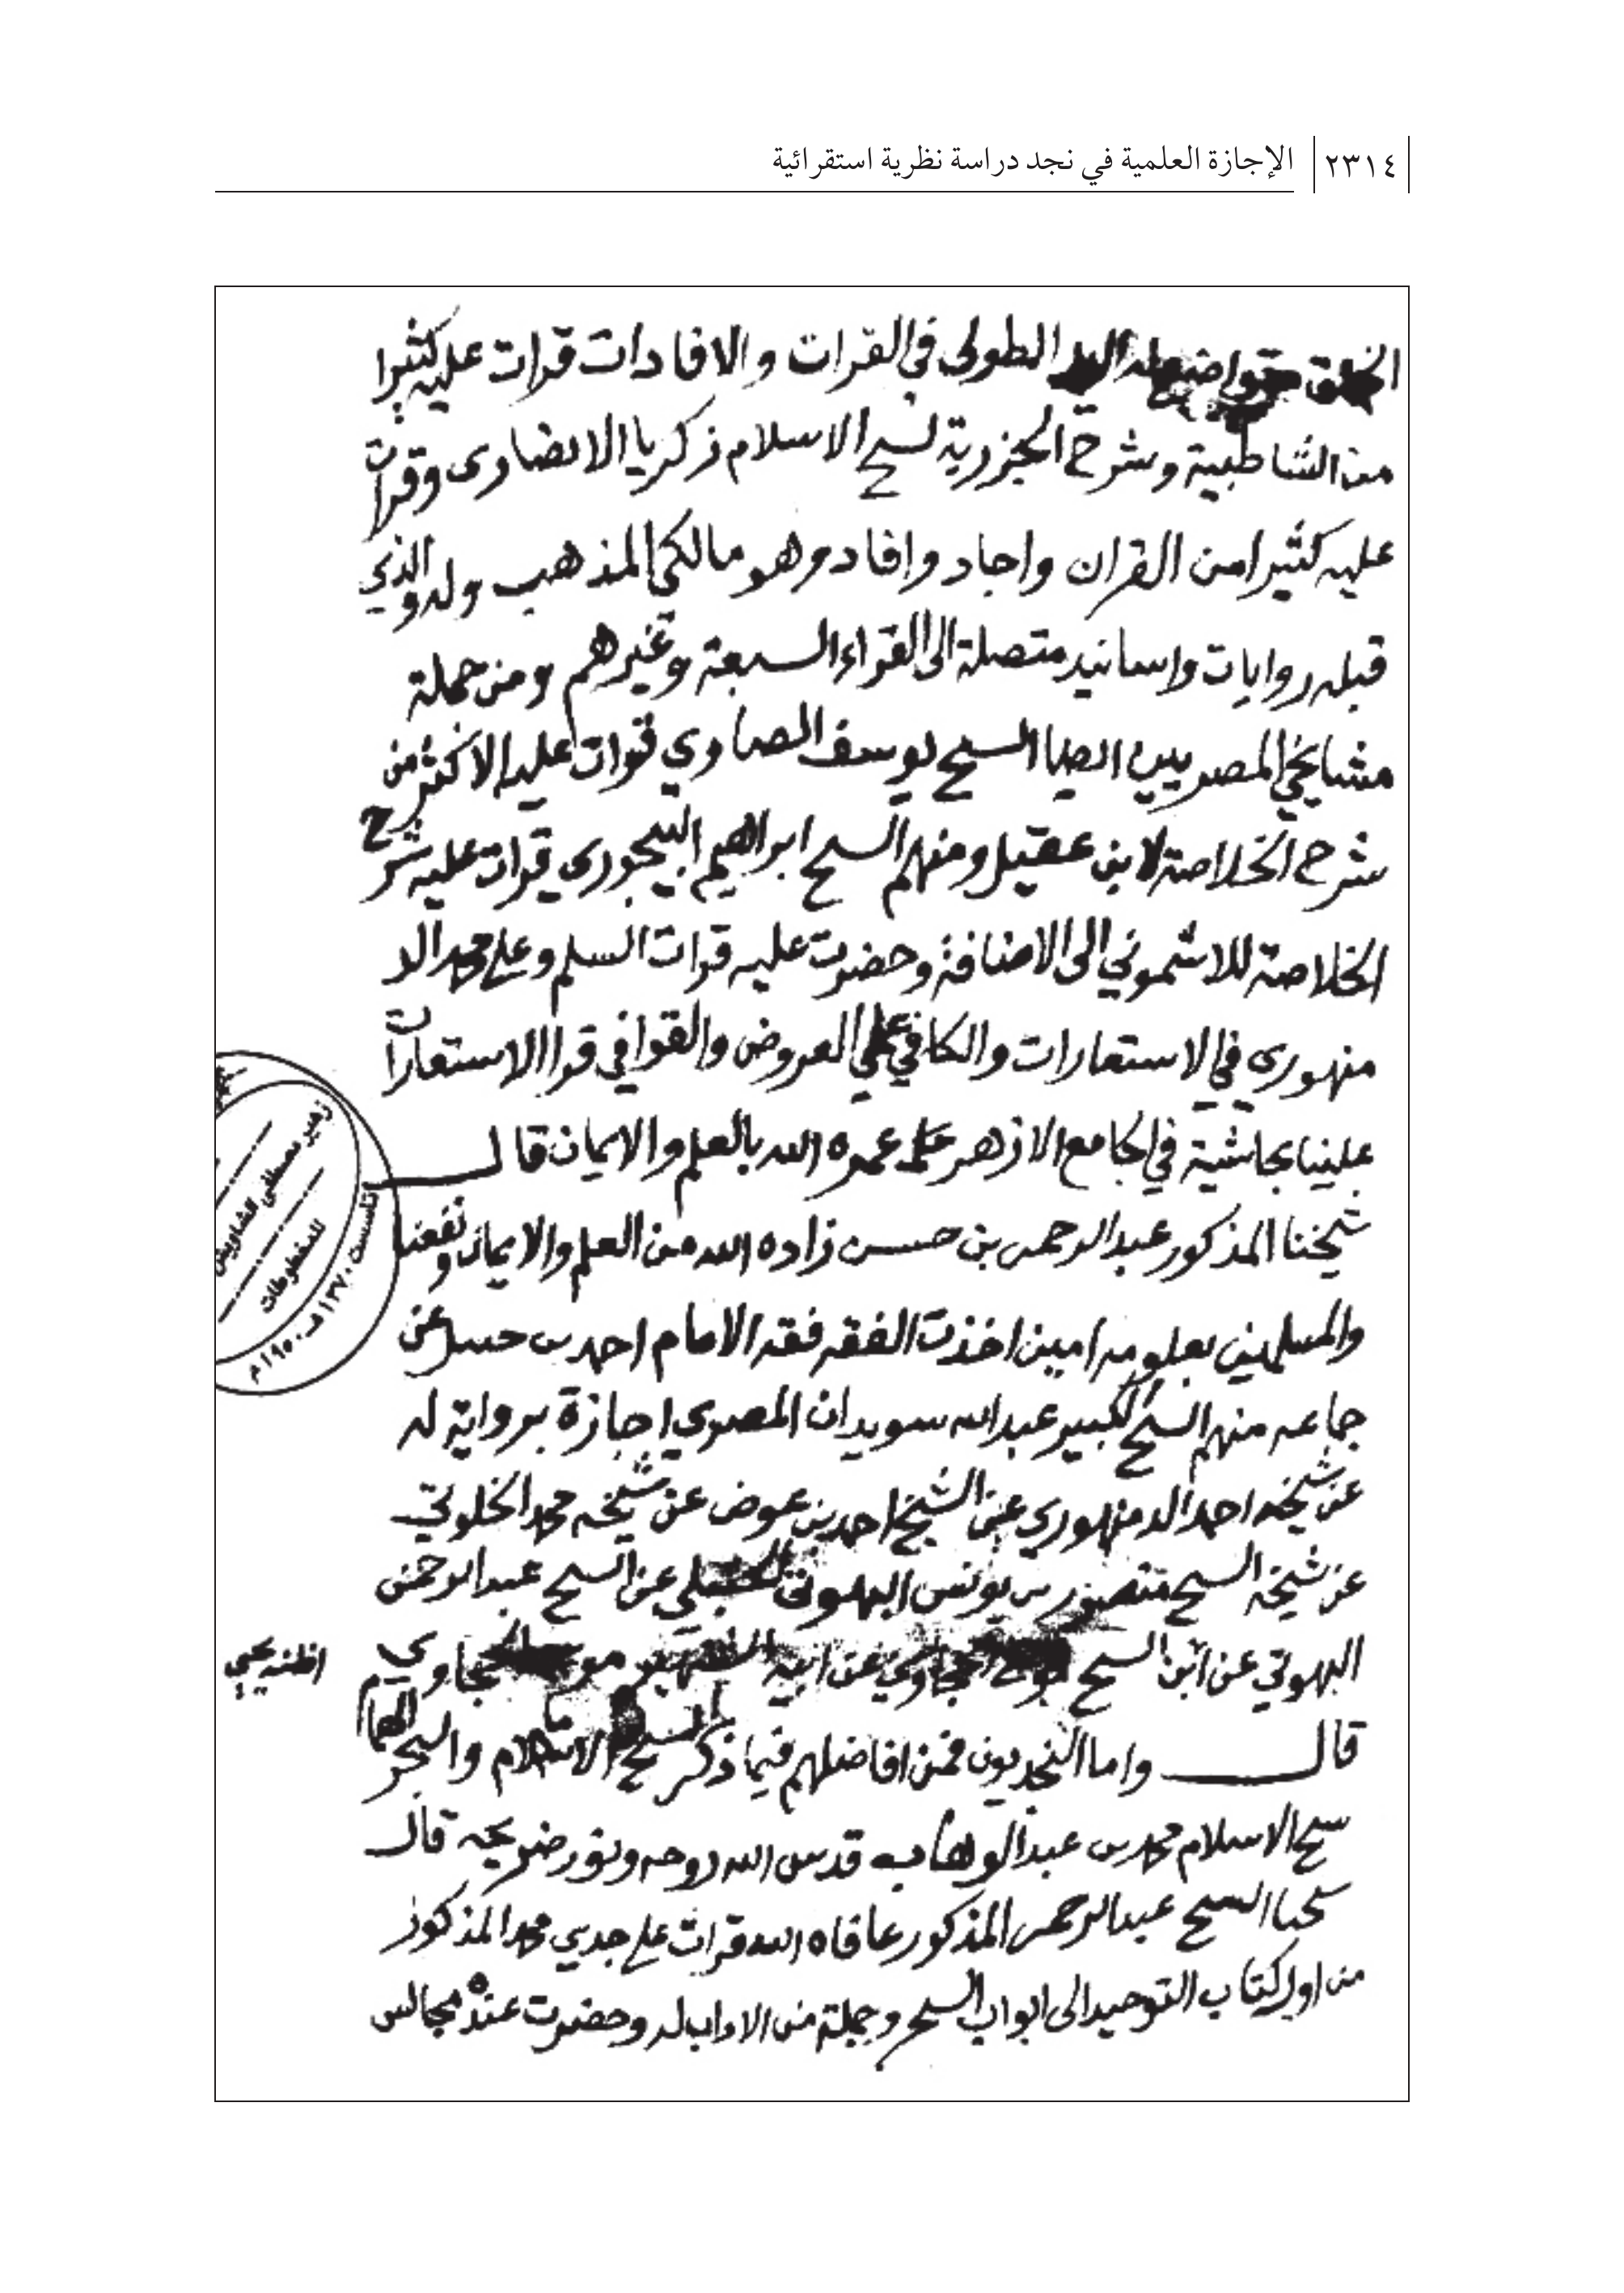 ٢٣١٤ الإجازة العلمية في نجد دراسة نظرية استقرائية
الخلق متواضع له اليد الطولى في القرات والافادات قرات عليه كثيرا
من الشاطبية وشرح الجزرية لشيخ الاسلام زكريا الانصارى وقرات
عليه كثيرا من القران واجاد وافاد وهو مالكي المذهب وله والذي
قبله روايات واسانيد متصلة الى القراء السبعة وغيرهم ومن جملة
مشايخي المصريين ايضا الشيخ يوسف الصاوي قرات عليه الاكثر من
شرح الخلاصة لابن عقيل ومنهم الشيخ ابراهيم البيجورى قرات عليه شرح
الخلاصة للاشموني الى الاضافة وحضرت عليه قرات السلم وعلى محمد الد
منهورى في الاستعارات والكافي علمي العروض والقوافي قرا الاستعارات
علينا بحاشية في الجامع الازهر عمره الله بالعلم والايمان قال
شيخنا المذكور عبدالرحمن بن حسن زاده الله من العلم والايمان ونفعنا
والمسلمين بعلومه امين اخذت الفقه فقه الامام احمد بن حنبل عن
جماعه منهم الشيخ الكبير عبدالله سويدان المصري اجازة بروايته له
عن شيخه احمد الدمنهوري عن الشيخ احمد بن عوض عن شيخه محمد الخلوتي
عن شيخه الشيخ منصور بن يونس البهوتي الحنبلي عن الشيخ عبدالرحمن
البهوتي عن ابن الشيخ الحجاوي عن ابيه موسى الحجاوي
اظنه يحيى
قال واما النجديون فمن افاضلهم فيما ذكر شيخ الاسلام والبحر الهمام
شيخ الاسلام محمد بن عبدالوهاب قدس الله روحه ونور ضريحه قال
شيخنا الشيخ عبدالرحمن المذكور عافاه الله قرات على جدي محمد المذكور
من اول كتاب التوحيد الى ابواب السحر وجملة من الاداب له وحضرت عنده مجالس
زهير مصطفى الشاويش
للمخطوطات
تأسست ١٣٧٠هـ - ١٩٥٠م